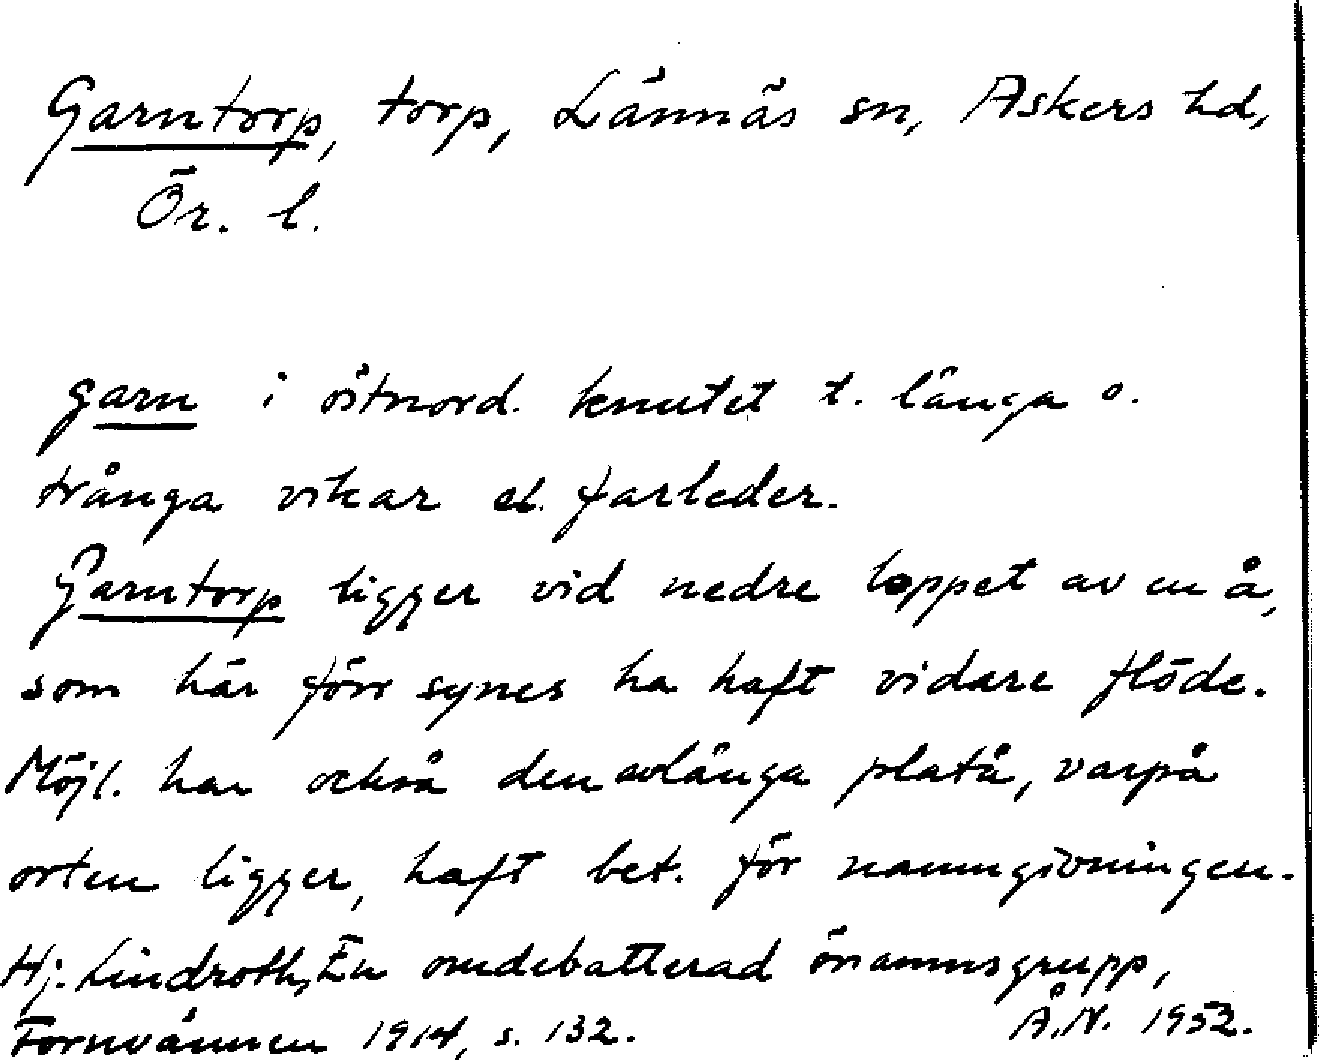 Garntorp, torp, Lännäs sn, Askers hd,
Ör. l.
garn i östnord. knutet t. långa o.
trånga vikar el. farleder.
Garntorp ligger vid nedre loppet av en å,
som här förr synes ha haft vidare flöde.
Möjl. har också den avlånga platå, varpå
orten ligger, haft bet. för namngivningen.
Hj. Lindroth, En omdebatterad önamnsgrupp,
Fornvännen 1914, s. 132.
Å.N. 1952.